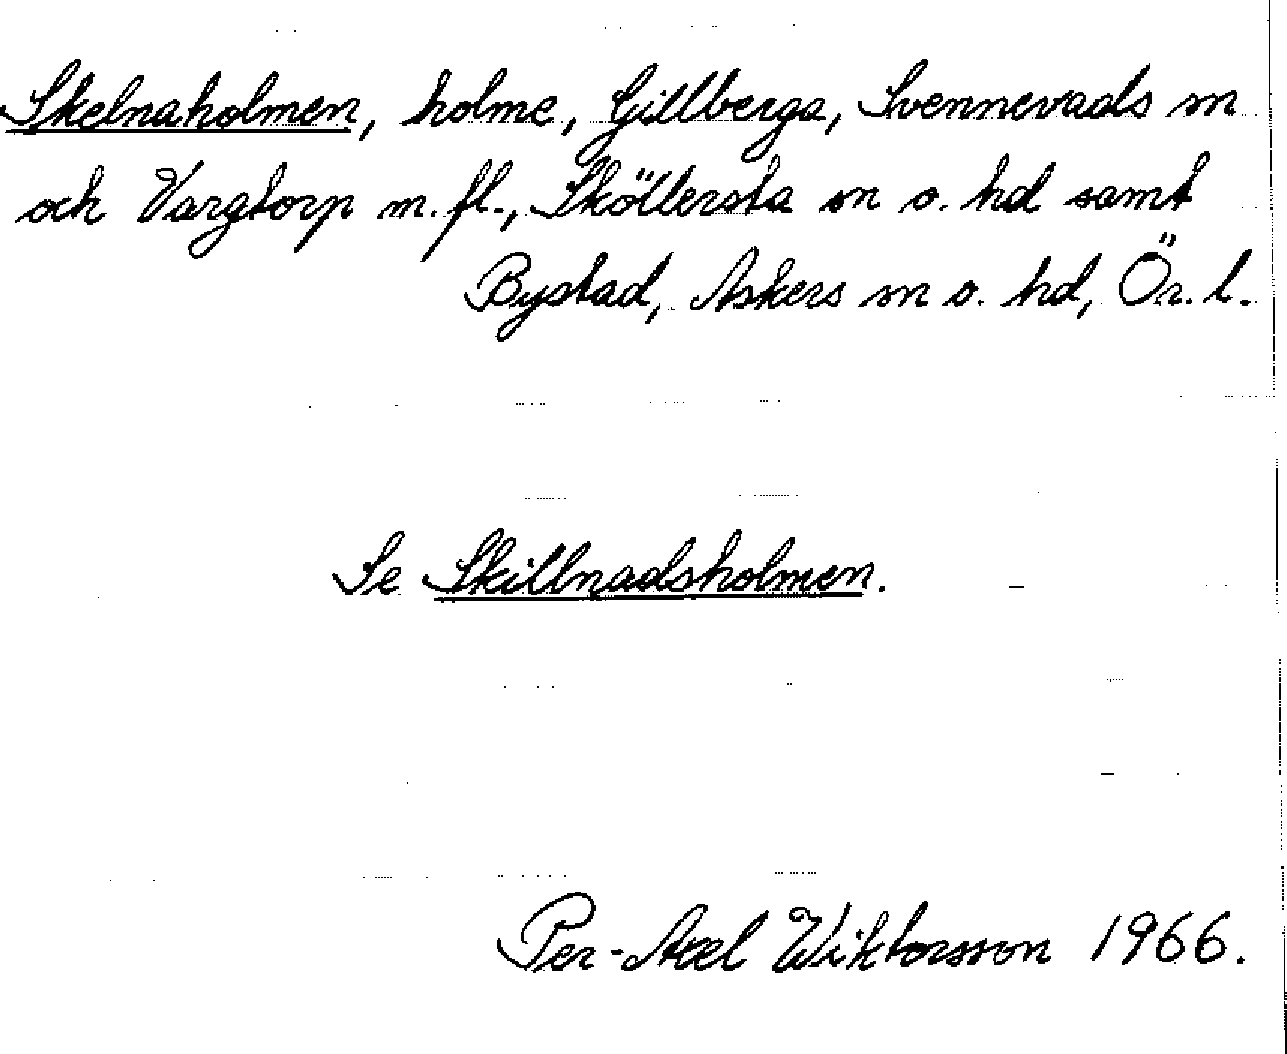 Skelnaholmen, holme, Gillberga, Svennevads sn
och Vargtorp m.fl., Sköllersta sn o. hd samt
Bystad, Askers sn o. hd, Ör. l.
Se Skillnadsholmen.
Per-Axel Wiktorsson 1966.